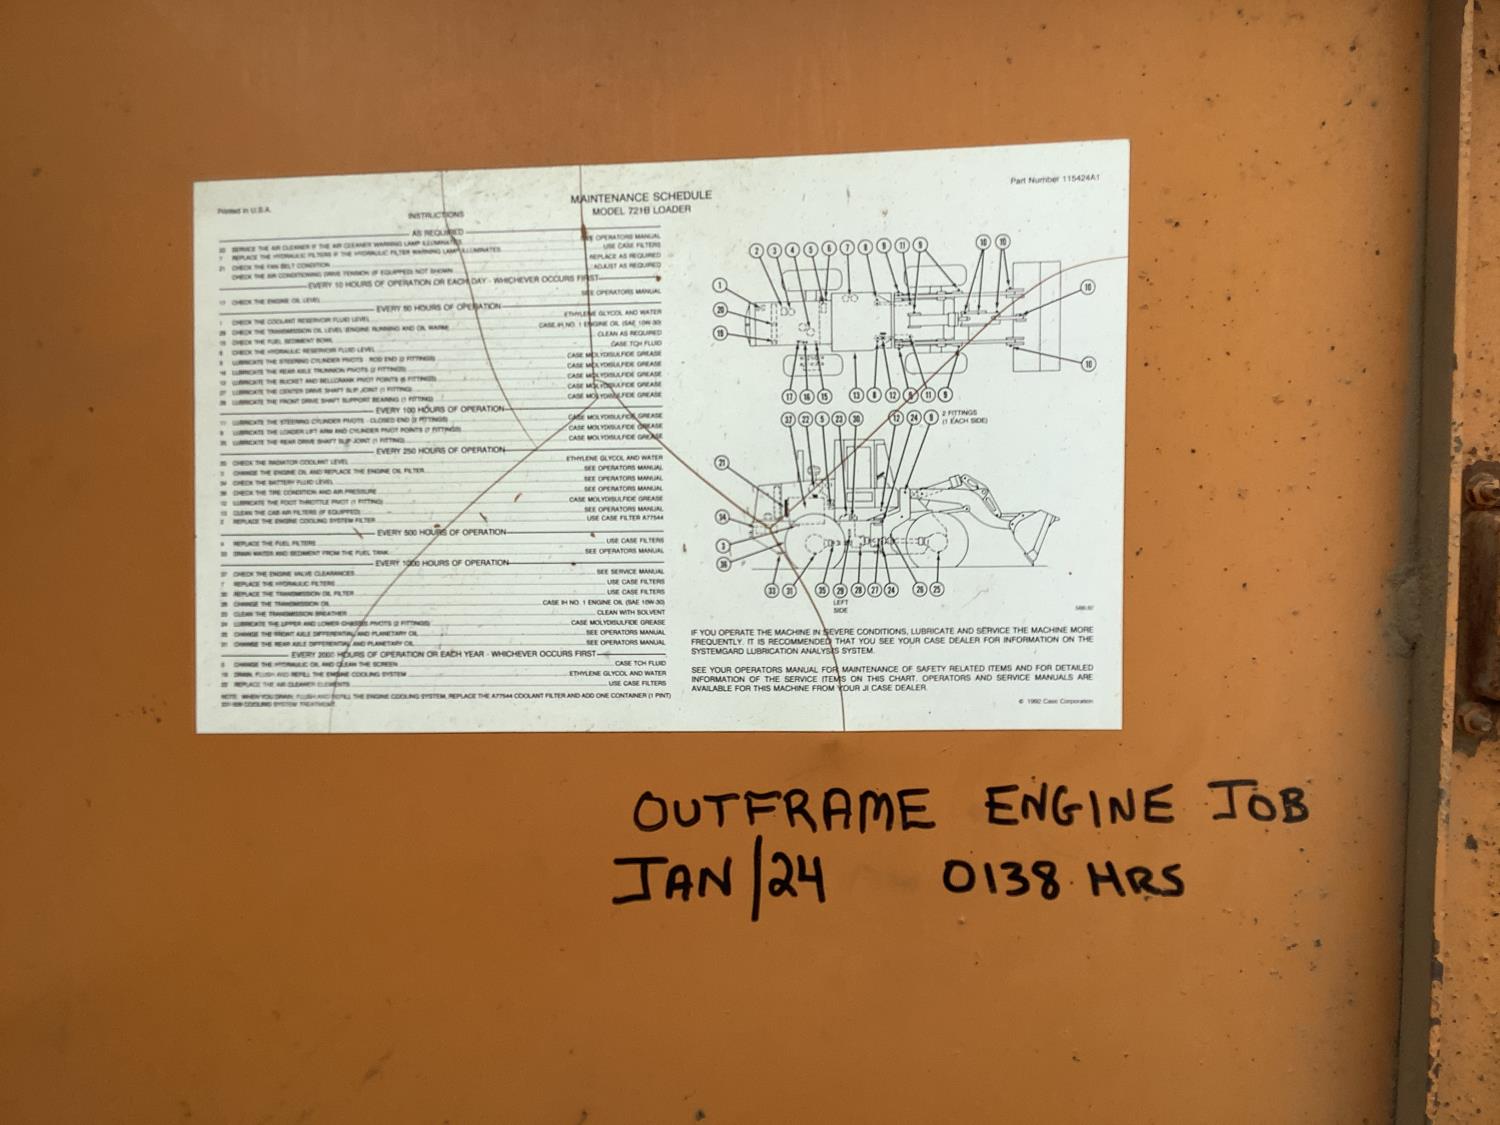 Printed in U.S.A.
MAINTENANCE SCHEDULE
MODEL 721B LOADER
Part Number 115424A1
INSTRUCTIONS
AS REQUIRED
SERVICE THE AIR CLEANER IF THE AIR CLEANER WARNING LAMP ILLUMINATES SEE OPERATORS MANUAL
REPLACE THE HYDRAULIC FILTERS IF THE HYDRAULIC FILTER WARNING LAMP ILLUMINATES USE CASE FILTERS
21 CHECK THE FAN BELT CONDITION REPLACE AS REQUIRED
CHECK THE AIR CONDITIONING DRIVE TENSION (IF EQUIPPED) NOT SHOWN ADJUST AS REQUIRED
EVERY 10 HOURS OF OPERATION OR EACH DAY - WHICHEVER OCCURS FIRST
17 CHECK THE ENGINE OIL LEVEL SEE OPERATORS MANUAL
EVERY 50 HOURS OF OPERATION
1 CHECK THE COOLANT RESERVOIR FLUID LEVEL ETHYLENE GLYCOL AND WATER
CHECK THE TRANSMISSION OIL LEVEL (ENGINE RUNNING AND OIL WARM) CASE IH NO. 1 ENGINE OIL (SAE 10W-30)
CHECK THE FUEL SEDIMENT BOWL CLEAN AS REQUIRED
CHECK THE HYDRAULIC RESERVOIR FLUID LEVEL CASE TCH FLUID
LUBRICATE THE STEERING CYLINDER PIVOTS - ROD END (2 FITTINGS) CASE MOLYDISULFIDE GREASE
LUBRICATE THE REAR AXLE TRUNNION PIVOTS (2 FITTINGS) CASE MOLYDISULFIDE GREASE
LUBRICATE THE BUCKET AND BELLCRANK PIVOT POINTS (6 FITTINGS) CASE MOLYDISULFIDE GREASE
LUBRICATE THE CENTER DRIVE SHAFT SLIP JOINT (1 FITTING) CASE MOLYDISULFIDE GREASE
LUBRICATE THE FRONT DRIVE SHAFT SUPPORT BEARING (1 FITTING) CASE MOLYDISULFIDE GREASE
EVERY 100 HOURS OF OPERATION
LUBRICATE THE STEERING CYLINDER PIVOTS - CLOSED END (2 FITTINGS) CASE MOLYDISULFIDE GREASE
LUBRICATE THE LOADER LIFT ARM AND CYLINDER PIVOT POINTS (7 FITTINGS) CASE MOLYDISULFIDE GREASE
LUBRICATE THE REAR DRIVE SHAFT SLIP JOINT (1 FITTING) CASE MOLYDISULFIDE GREASE
EVERY 250 HOURS OF OPERATION
CHECK THE RADIATOR COOLANT LEVEL ETHYLENE GLYCOL AND WATER
CHANGE THE ENGINE OIL AND REPLACE THE ENGINE OIL FILTER SEE OPERATORS MANUAL
CHECK THE BATTERY FLUID LEVEL SEE OPERATORS MANUAL
CHECK THE TIRE CONDITION AND AIR PRESSURE SEE OPERATORS MANUAL
LUBRICATE THE FOOT THROTTLE PIVOT (1 FITTING) CASE MOLYDISULFIDE GREASE
CLEAN THE CAB AIR FILTERS (IF EQUIPPED) SEE OPERATORS MANUAL
2 REPLACE THE ENGINE COOLING SYSTEM FILTER USE CASE FILTER A77544
EVERY 500 HOURS OF OPERATION
REPLACE THE FUEL FILTERS USE CASE FILTERS
33 DRAIN WATER AND SEDIMENT FROM THE FUEL TANK SEE OPERATORS MANUAL
EVERY 1000 HOURS OF OPERATION
37 CHECK THE ENGINE VALVE CLEARANCES SEE SERVICE MANUAL
7 REPLACE THE HYDRAULIC FILTERS USE CASE FILTERS
REPLACE THE TRANSMISSION OIL FILTER USE CASE FILTERS
CHANGE THE TRANSMISSION OIL CASE IH NO. 1 ENGINE OIL (SAE 10W-30)
CLEAN THE TRANSMISSION BREATHER CLEAN WITH SOLVENT
LUBRICATE THE UPPER AND LOWER CHASSIS PIVOTS (2 FITTINGS) CASE MOLYDISULFIDE GREASE
CHANGE THE FRONT AXLE DIFFERENTIAL AND PLANETARY OIL SEE OPERATORS MANUAL
31 CHANGE THE REAR AXLE DIFFERENTIAL AND PLANETARY OIL SEE OPERATORS MANUAL
EVERY 2000 HOURS OF OPERATION OR EACH YEAR - WHICHEVER OCCURS FIRST
CHANGE THE HYDRAULIC OIL AND CLEAN THE SCREEN CASE TCH FLUID
DRAIN, FLUSH AND REFILL THE ENGINE COOLING SYSTEM ETHYLENE GLYCOL AND WATER
REPLACE THE AIR CLEANER ELEMENTS USE CASE FILTERS
NOTE: WHEN YOU DRAIN, FLUSH AND REFILL THE ENGINE COOLING SYSTEM, REPLACE THE A77544 COOLANT FILTER AND ADD ONE CONTAINER (1 PINT)
COOLING SYSTEM TREATMENT.
2 3 4 5 6 7 8 9 11 9 10 10
1 10
20
19 10
17 16 15 13 8 12 9 11 9
37 22 5 23 30 12 24 9 2 FITTINGS
(1 EACH SIDE)
21
34
3
36
33 31 35 29 28 27 24 26 25
LEFT
SIDE
IF YOU OPERATE THE MACHINE IN SEVERE CONDITIONS, LUBRICATE AND SERVICE THE MACHINE MORE
FREQUENTLY. IT IS RECOMMENDED THAT YOU SEE YOUR CASE DEALER FOR INFORMATION ON THE
SYSTEMGARD LUBRICATION ANALYSIS SYSTEM.
SEE YOUR OPERATORS MANUAL FOR MAINTENANCE OF SAFETY RELATED ITEMS AND FOR DETAILED
INFORMATION OF THE SERVICE ITEMS ON THIS CHART. OPERATORS AND SERVICE MANUALS ARE
AVAILABLE FOR THIS MACHINE FROM YOUR JI CASE DEALER.
© 1992 Case Corporation
OUTFRAME ENGINE JOB
JAN/24 0138 HRS